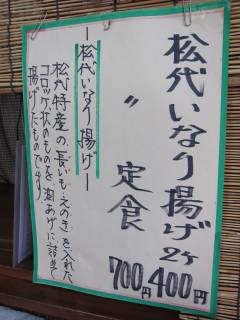 松代いなり揚げ 2ヶ 400円
〃 定食 700円
―松代いなり揚げ―
松代特産の長いも・えのきを入れた
コロッケ状のものを油あげに詰めて
揚げたものです。